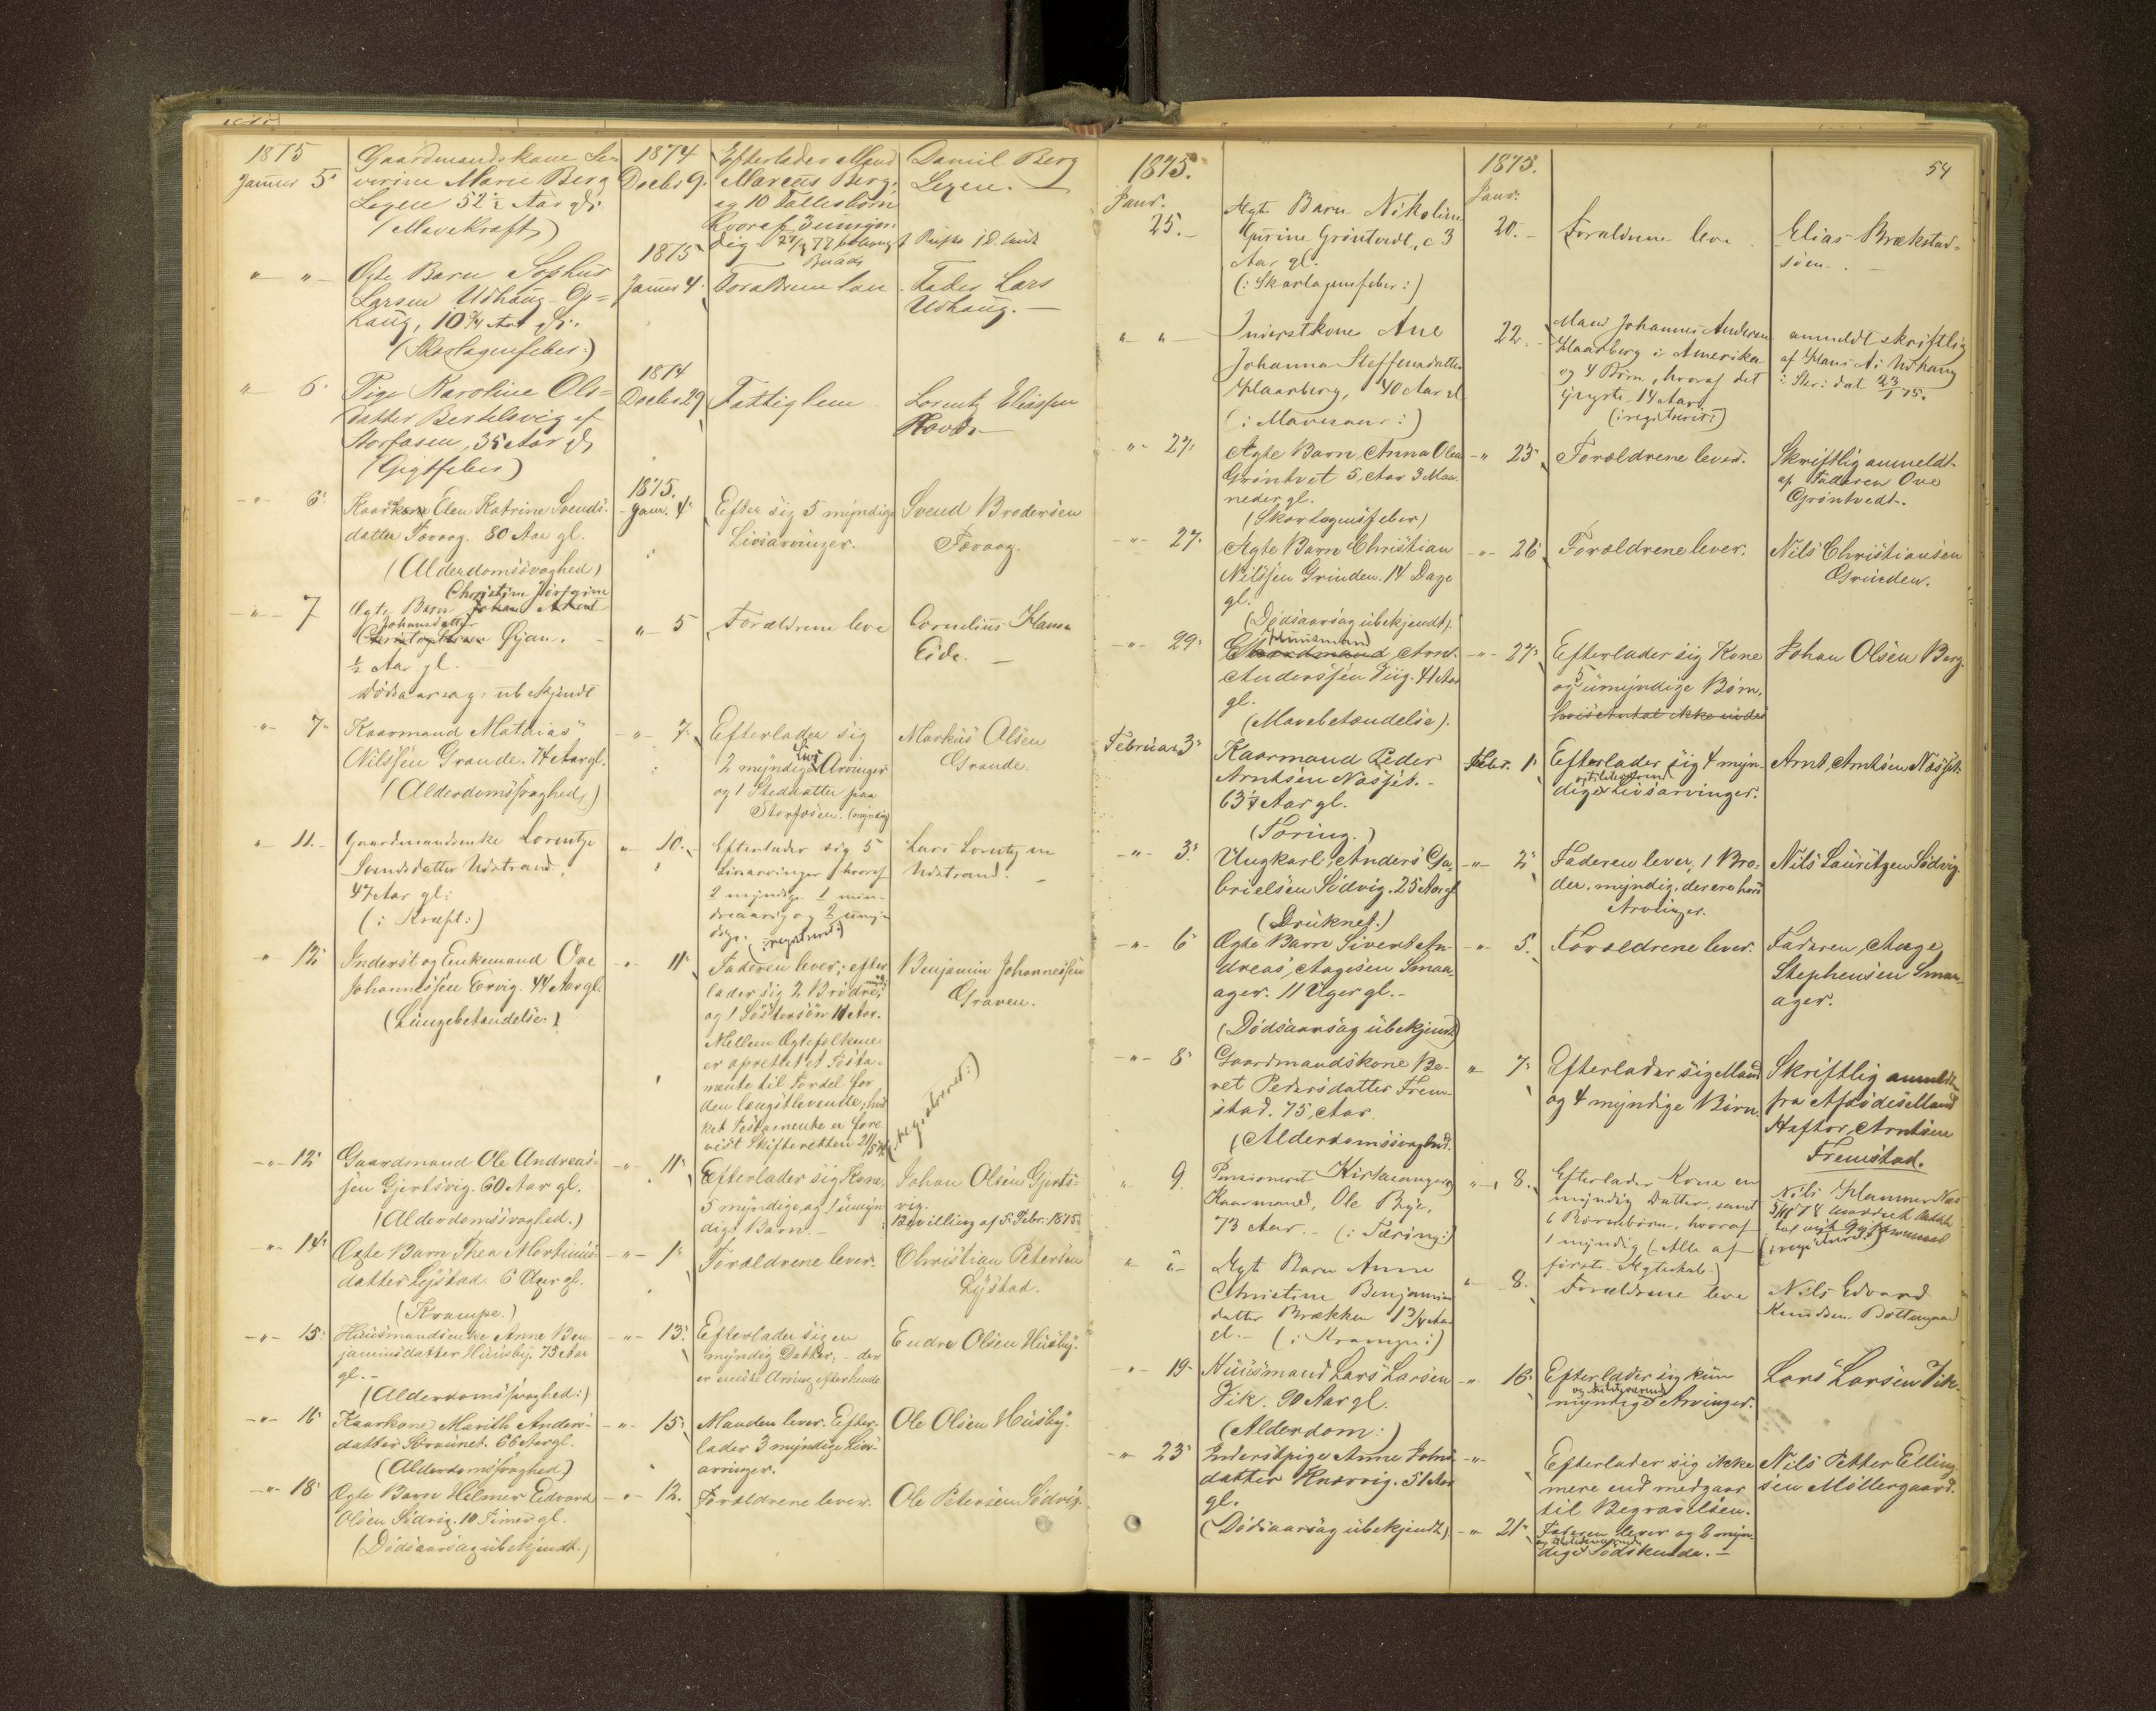 1875
Januar 5
Gaardmandskone Se-
verine Marie Berg
Legen 52½ Aar gl.
(Mavekræft)
1874
Decbr 9.
Efterlader Mand
Marcus Berg,
og 10 Fællesbørn
hvoraf 3 umyn-
dig
Daniel Berg
Legen. —
" " —
Ægte Barn Sophus
Larsen Udhaug Op-
haug, 10¾ Aar gl.
(Skarlagensfeber:)
1875
Januar 4.
Forældrene leve
Fader Lars
Udhaug. —
" 6
Pige Karoline Ols-
datter Bertelsvig af
Storfosen, 35 Aar gl.
(Gigtfeber)
1874
Decbr 29
Fattiglem
Lorentz Eliassen
Hovde
-"- 6.
Kaarkone Elen Katrine Svends-
datter Farvaag. 80 Aar gl.
(Alderdomssvaghed)
1875.
Janr. 4.
Efter sig 5 myndige
Livsarvinger.
Svend Brodersen
Farvaag.
-"- 7
Christine Jørgine
Ægte Barn
Johansdatter
Øyan. —
½ Aar gl. —
Dødsaarsag: ubekjendt
" 5
Forældrene leve
Cornelius Hansen
Eide. —
-"- 7.
Kaarmand Mathias
Nilssen Grande. 74 Aar gl.
(Alderdomssvaghed,)
-"- 7.
Efterlader sig
2 myndige Livs Arvinger
og 1 Steddatter paa
Storfosen. (myndig)
Markus Olsen
Grande.
" 11. —
Gaardmandsenke Lorentze
Svendsdatter Udstrand,
47 Aar gl:
(: Kræft:)
" 10. —
Efterlader sig 5
Livsarvinger hvoraf
2 myndige 1 min-
dreaarig og 2 umyn-
dige. (:registreret:)
Lars Lorentzen
Udstrand. —
-"- 12.
Inderst og Enkemand Ove
Johannessen Ervig. 44 Aar gl.
(Lungebetændelse.)
-"- 11.
Faderen lever; efter-
lader sig 2 Brødre,
og 1 Søstersøn 11 Aar.
Mellem Ægtefolkene
er oprettet et Testa-
mente til Fordel for
den længstlevende; hvil-
ket Testamente er fore-
vist Skifteretten
(:registreret:)
Benjamin Johannessen
Graven.
-"- 12.
Gaardmand Ole Andreas-
sen Gjertsvig. 60 Aar gl.
(Alderdomssvaghed.)
-"- 11.
Efterlader sig Kone,
5 myndige, og 1 umyn-
dige Barn. —
Johan Olsen Gjerts-
vig.
Bevilling af 5. Febr: 1875.
-"- 14.
Ægte Barn Thea Martinus-
datter Lystad. 6 Uger gl.
(Krampe.)
-"- 1.
Forældrene lever.
Christian Petersen
Lystad.
-"- 15.
Huusmandsenke Anne Ben-
jaminsdatter Huusby. 75 Aar
gl. —
(Alderdomssvaghed:)
-"- 13.
Efterlader sig en
myndig Datter, — der
er eneste Arving efter hende
Endre Olsen Husby.
-"- 16
Kaarkone Marith Anders-
datter Straumet. 66 Aar gl.
(Alderdomssvaghed)
-"- 15.
Manden lever. Efter-
lader 3 myndige Livs-
arvinger.
Ole Olsen Husby.
-"- 18.
Ægte Barn Helmer Edvard
Olsen Sødvig. 10 Timer gl.
(Dødsaarsag ubekjendt.)
-"- 12.
Forældrene lever.
Ole Petersen Sødvig.
54
1875.
Janr.
25. —
Ægte Barn Nikoline
Gurine Grøntvedt, c 3
Aar gl.
(: Skarlagensfeber :)
1875.
Janr:
20. —
Forældrene leve
Elias Brækstad-
søen. —
" " —
Inderstkone Ane
Johanna Steffensdatter
Haarberg, 40 Aar gl
22. —
Mand Johannes Andersen
Haarberg i Amerika
og 4 Børn, hvoraf det
yngste 14 Aar
(:registreret:)
anmeldt skriftlig
af Hans A. Udhaug
i Skr: dat 23/1 75.
-"- 27.
Ægte Barn Anna Olsen
Grøntvet 5 Aar 3 Maa-
neder gl.
(Skarlagensfeber)
-" 23.
Forældrene lever.
Skriftlig anmeldt
af Faderen Ove
Grøntvedt.
-"- 27.
Ægte Barn Christian
Nilssen Grinden. 14 Dage
gl.
(Dødsaarsag ubekjendt).
-"- 26.
Forældrene lever.
Nils Christiansen
Grinden.
-"- 29.
Huusmand
Gaardmand Arnt
Anderssen Viig. 41 Aar
gl.
(Mavebetændelse).
-"- 27.
Efterlader sig Kone
og 5 umyndige Børn,
hvis Antal ikke vides
Johan Olsen Berg.
Februar 3.
Kaarmand Peder
Arntsen Næsset. —
63¼ Aar gl.
(Tæring.)
Febr. 1.
Efterlader sig 4 myn-
og tilstedeværende
dige Livsarvinger.
Arnt Arntsen Næsset.
-"- 3.
Ungkarl Anders Ga-
brielsen Sødvig. 25 Aar gl
(Druknet.)
-"- 2.
Faderen lever, 1 Bro-
der, myndig, der ere hans
Arvinger.
Nils Lauritzen Sødvig.
-"- 6.
Ægte Barn Sivert An-
dreas Aagesen Smaa-
ager. 11 Uger gl. —
(Dødsaarsag ubekjendt)
-"- 5.
Forældrene lever.
Faderen Aage
Stephensen Smaa-
ager.
-"- 8.
Gaardmandskone Be-
ret Pedersdatter Frem-
stad. 75 Aar.
(Alderdomssvaghed.
" 7.
Efterlader sig Mand
og 4 myndige Børn.
Skriftlig anmeldt
fra Afdødes Mand
Haftor Arntsen
Fremstad.
" 9.
Pensioneret Kirkesanger og
Kaarmand, Ole Bye,
73 Aar. — (: Tæring:)
-"- 8.
Efterlader Kone en
myndig Datter, samt
6 Børnebørn, hvoraf
1 myndig (Alle af
første Ægteskab)
Nils Hammer Næs
(:registreret:)
" " —
Ægte Barn Anne
Christine Benjamins-
datter Brækken 1¾ Aar
gl. — (: Krampe:)
" 8.
Forældrene leve
Nils Edvard
Knudsen Bottengaard
-"- 19.
Huusmand Lars Larsen
Vik. 90 Aar gl.
(Alderdom:)
-"- 16.
Efterlader sig kun
og tilstedeværende
myndige Arvinger.
Lars Larsen Vik.
-"- 23.
Inderstpige Anne Johns-
datter Knarvig. 51 Aar
gl.
(Dødsaarsag ubekjendt)
-"-
Efterlader sig ikke
mere end medgaar
til Begravelsen.
-"- 21.
Faderen lever og 2 myn-
og tilstedeværende
dige Sødskende. —
Nils Petter Elling-
sen Møllergaard.